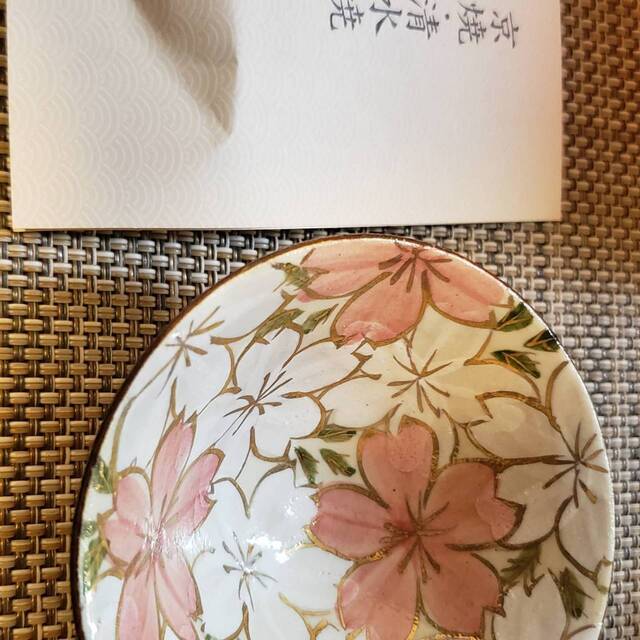 京焼・清水焼